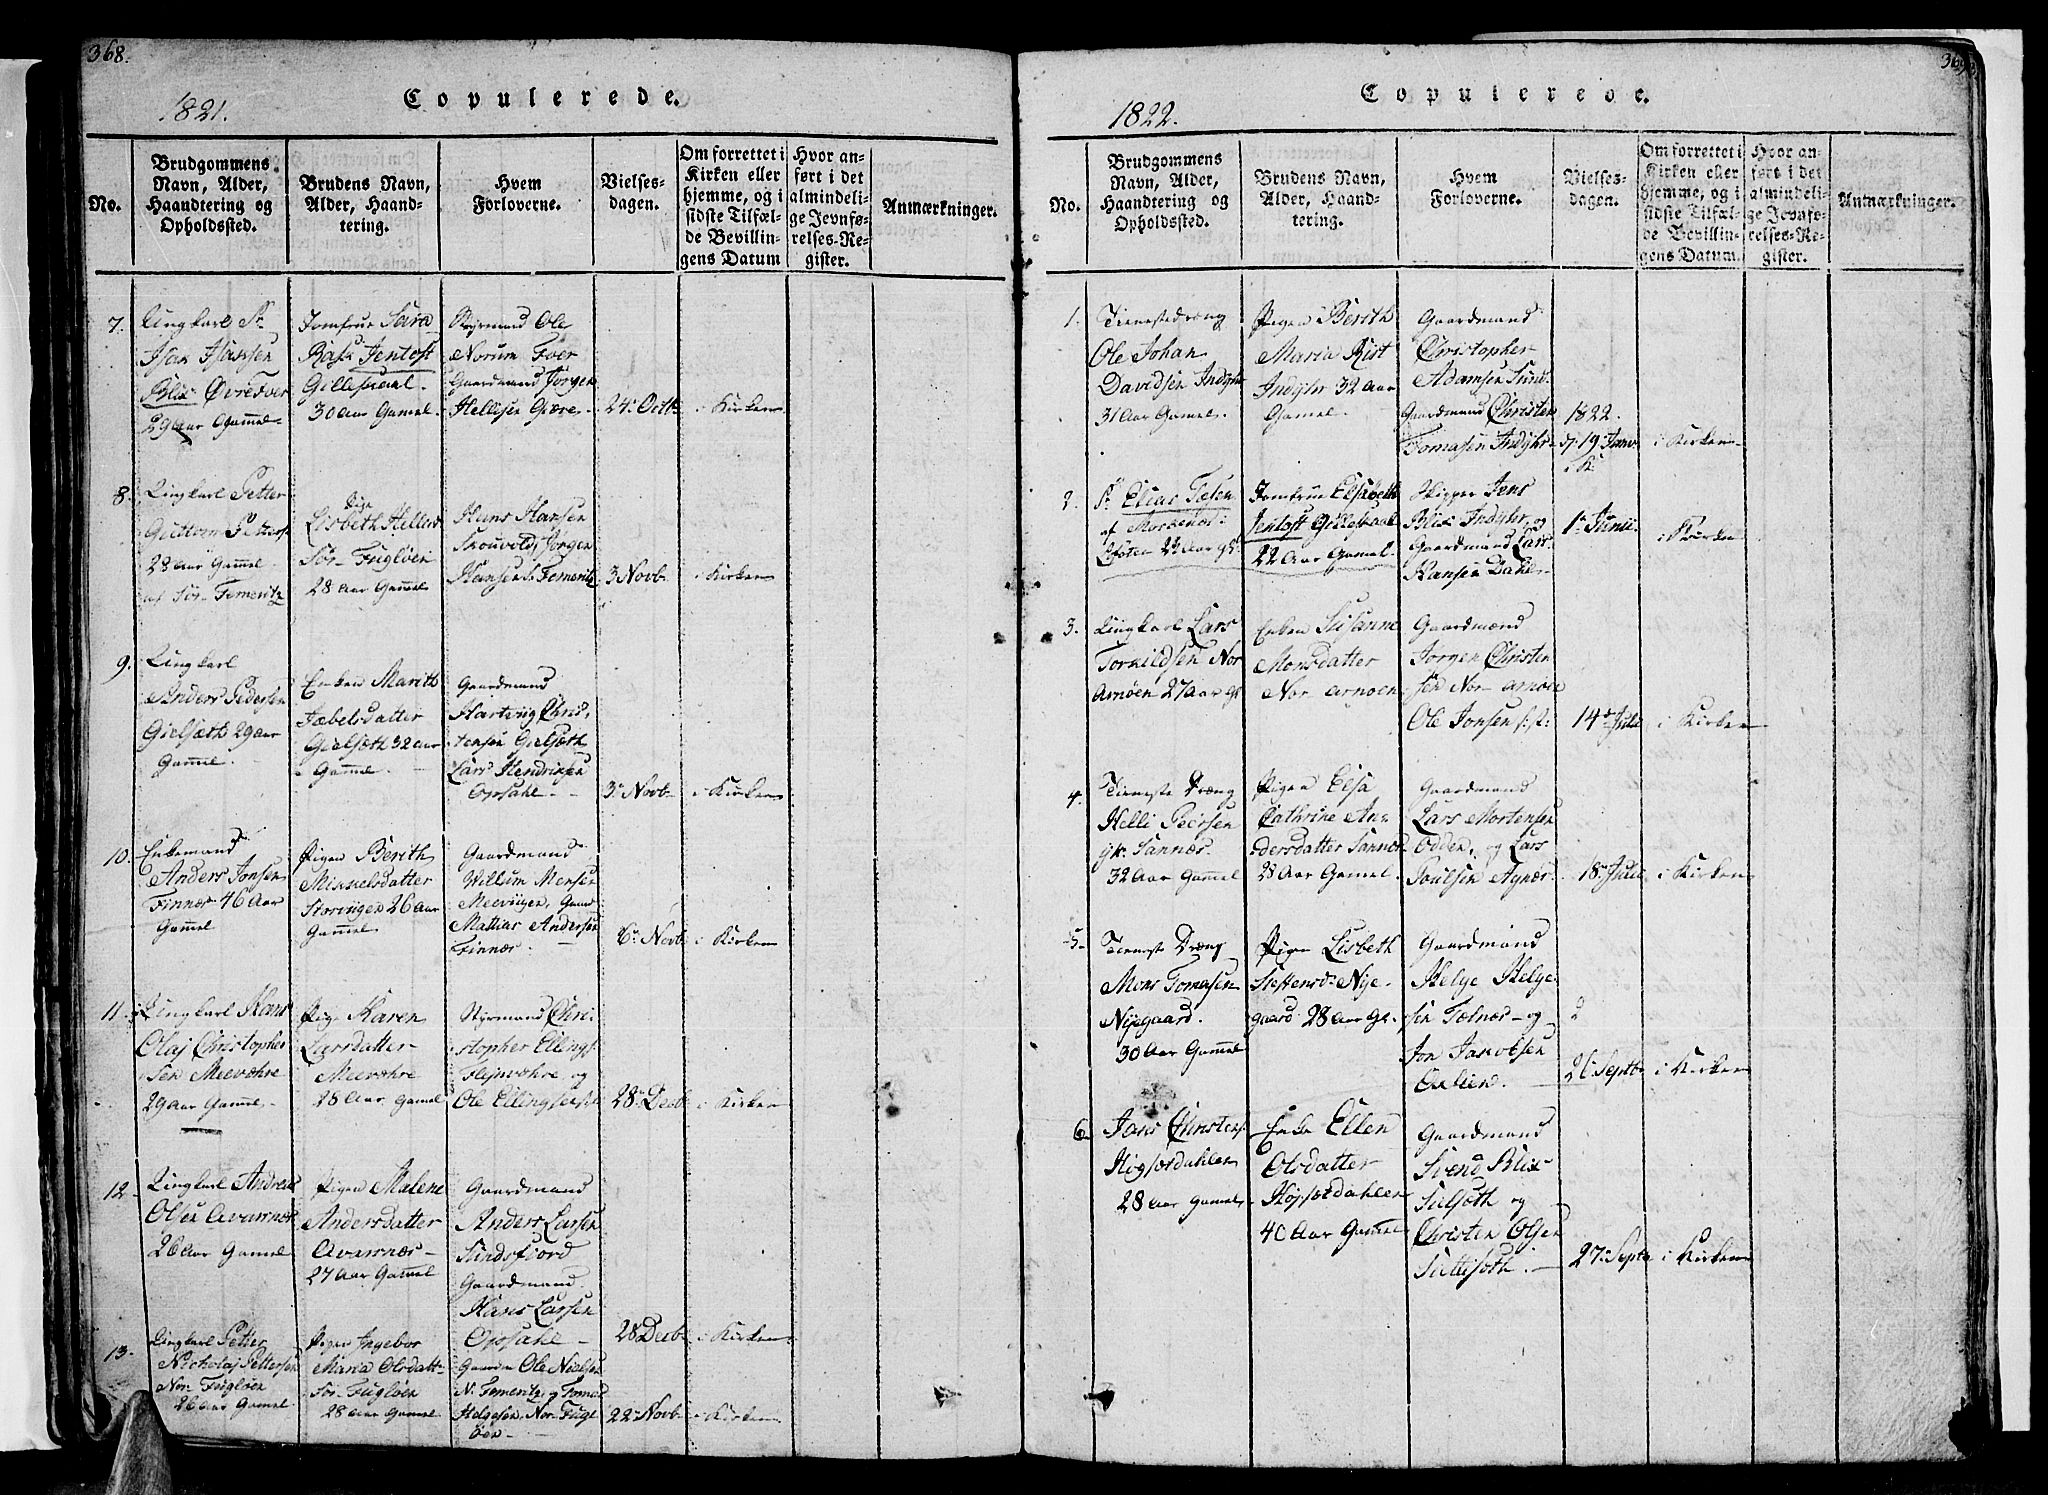 368.
1821.
Copulerede.
No.
Brudgommens
Navn, Alder,
Haandtering og
Opholdssted.
Brudens Navn,
Alder, Haand-
tering.
Hvem
Forloverne.
Vielses-
dagen.
Om forrettet i
Kirken eller
hjemme, og i
sidste Tilfæl-
de Bevillin-
gens Datum
Hvor an-
ført i det
almindeli-
ge Jevnfø-
relses-Re-
gister.
Anmærkninger.
7.
Ungkarl Sr
Hansen
Blix Øvre Fver
29 aar Gam̅el
Jomfrue Sara
Rask Jentoft
Gilleskaal
30 Aar Gamel
Styrmand Ole
Norum Fver
Gaardmand Jørgen
Hellisen Giære
24 Octb
i Kirken
8.
Ungkarl Petter
Guttorm
23 Aar Gam̅el
af Sör Femeritz
Pige
Lisbeth
Sör Fugløen
28 Aar Gam̅el
Hans Hansen
Skouvold, Jörgen
Hansen S. Femeritz
3 Novb
i Kirken
9.
Ungkarl
Anders Pedersen
Gielsæth 29 aar
Gam̅el
Enken Marith
Fæbelsdatter
Gielsæth 32 aar
Gam̅el
Gaardmand
Hartvig Chris
tensen Gielsæth
Lars Hendrixsen
Opsahl
3 Novb
i Kirken
10.
Enkemand
Anders Jonsen
Finnæs 46 Aar
Gam̅el
Pigen Berith
Mikkelsdatter
Storvigen 26 aar
Gam̅el
Gaardmand
Willum Monsen
Meevigen, Gaard
Mathias Andersen
Finnæs
6 Novb
i Kirken
11.
Ungkarl Hans
Olaj Christopher
sen Meevæhre
29 aar Gam̅el
Pige Karen
Larsdatter
Meevæhre
28 Aar Gamel
Styrmand Chri
stopher Ellings
Flejnvæhre og
Ole Ellingsen
28 Decb
i Kirken
12
Ungkarl Andreas
Olsen Avarnæs
26 aar Gam̅el
Pigen Malene
Andersdatter
Avarnæs
27 Aar Gam̅el
Gaardmand
Anders Larsen
Sundsfjord
Gaardmand
Hans Larsen
Opsahl
28 Decb
i Kirken
13.
Ungkarl Petter
Nicholaj Pettersen
Nor Fugløen
26 aar Gamel
Pigen Ingebor
Maria Olsdatt
Sör Fugløen
28 Aar Gam̅el
Gaardm Ole Nielsen
N. Femeritz, og Tomas
Helgesen, Nor Fugl
öen
22 Novb
i Kirken
369
1822.
Copulerede.
No.
Brudgommens
Navn, Alder,
Haandtering og
Opholdssted.
Brudens Navn,
Alder, Haand-
tering.
Hvem
Forloverne.
Vielses-
dagen.
Om forrettet i
Kirken eller
hjemme, og i
sidste Tilfæl-
de Bevillin-
gens Datum.
Hvor an-
ført i det
almindeli-
ge Jevnfø-
relses-Re-
gister.
Antmærkninger.
1.
Tienestedreng
Ole Johan
Davidsen Indyhr
31 Aar Gamel
Pigen Berith
Maria Rist
Indyhr 32 Aar
Gamel
Gaardmand
Christopher
Adamsen Sund
Gaardmand Christen
Tomasen Indyhr
1822.
d. 19 Janv
i K
i Kirken
2.
Sr Elias Falsen
af
23 Aar gl
Jomfrue Elsabeth
Jentoft Gilleskaal
22 Aar Gamel
Skipper Jens
Blix Indyhr, og
Gaardmand Lars
Hansen Dahl
1 Junii
i Kirken
3.
Ungkarl Lars
Torkildsen Nor
Arnöen 27 Aar gl
Enken Susanne
Monsdatter
Nor Arnöen
Gaardmænd
Jörgen Christen
sen Nor Arnöen
Ole Jonsen s: st:
14 Juli
i Kirken
4.
Tieneste Dræng
Helli Pedersen
Sannæs
32 Aar Gam̅el
Pigen Elsa
Cathrine An
dersdatter Sannæs
28 Aar Gamel
Gaardmand
Lars Mortensen
Odden, og Lars
Poulsen Agnæs
18 Juli
i Kirken
5
Tieneste Dræng
Mons Tomasen
Nygaard.
30 Aar Gam̅el
Pigen Lisbeth
Steffensd Nye
gaard 28 Aar Gl
Gaardmænd
Helge Helge
sen Fælnæs og
Jon Jacobsen
26 Septb
i Kirken
6
Jens Christens
Høgsætdahlen
28 Aar Gamel
Enke Ellen
Olsdatter
Høgsætdahlen
40 Aar Gam̅el
Gaardmand
Svend Blix
Sulsöth og
Christen Olsen
27 Septb
i Kirken